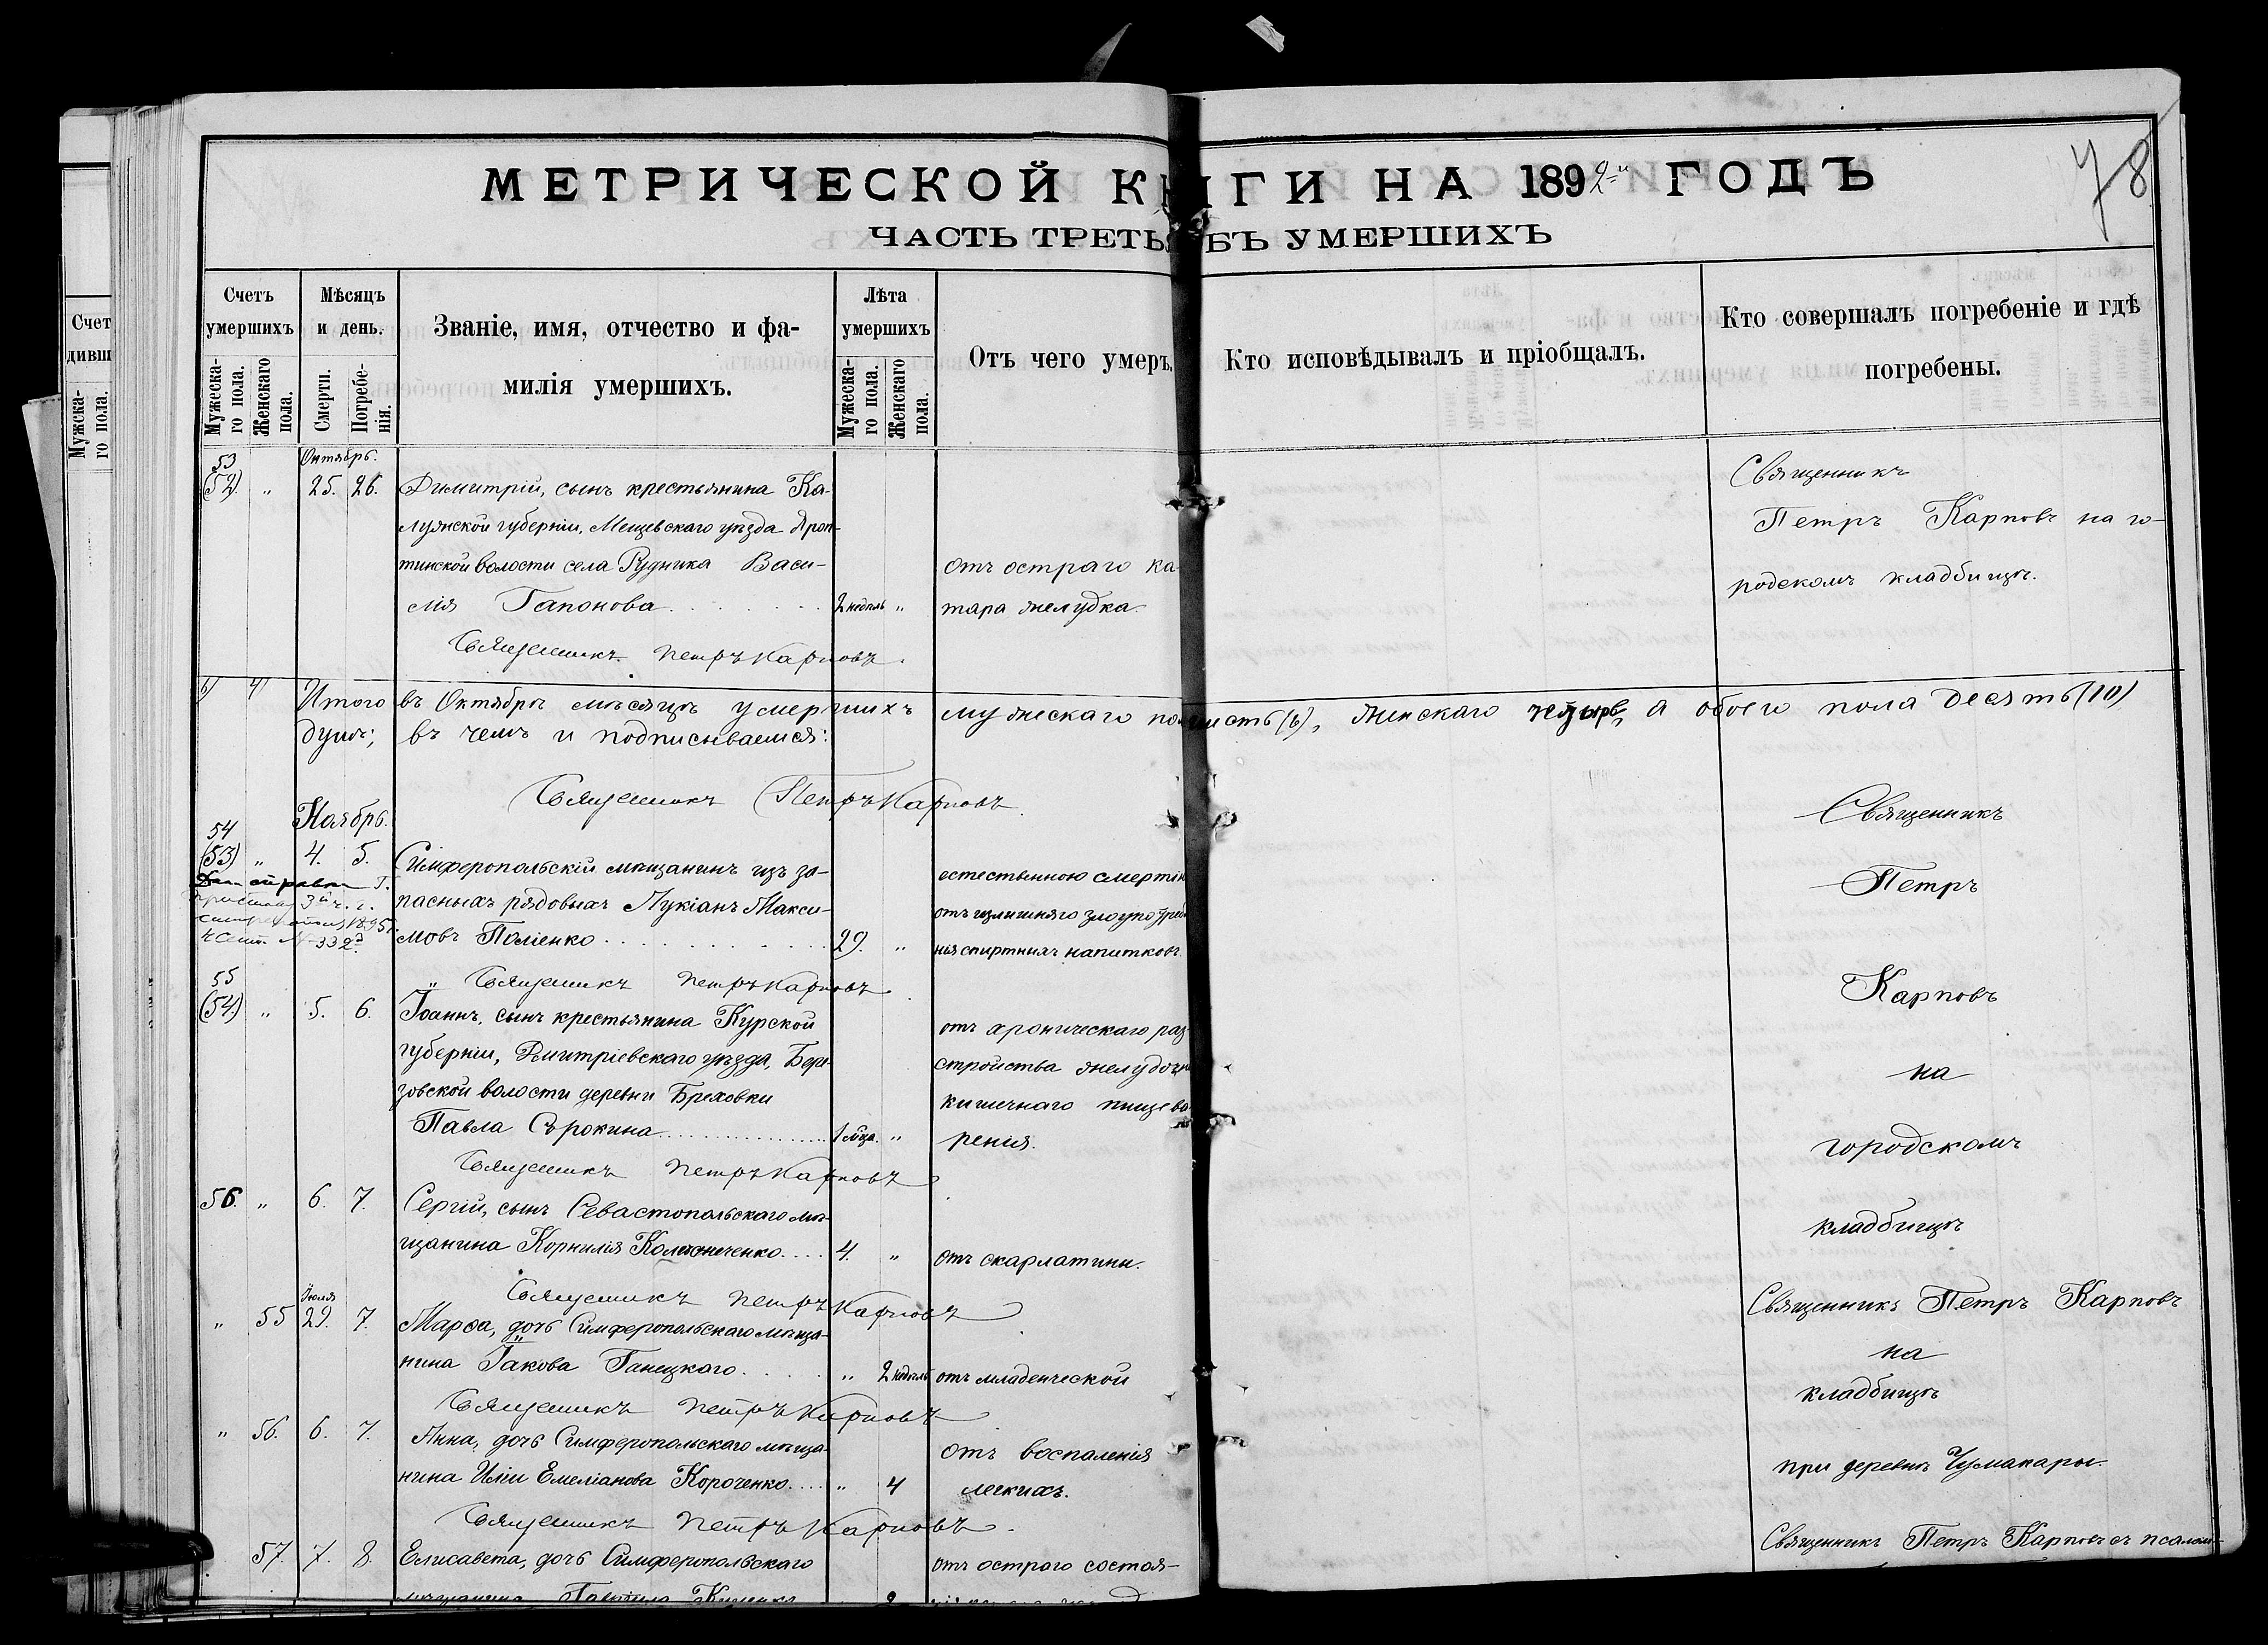 МЕТРИЧЕСКОЙ КНИГИ НА 1892-й ГОДЪ
78
ЧАСТЬ ТРЕТЬЯ БЪ УМЕРШИХЪ
Счет
дивш
Мужска-
го пола.
Счетъ
умершихъ
Мужеска-
го пола.
Женскаго
пола.
Мѣсяцъ
и день.
Смерти.
Погребе-
нія.
Званіе, имя, отчество и фа-
милія умершихъ.
Лѣта
умершихъ
Мужеска-
го пола.
Женскаго
пола.
Отъ чего умеръ.
Кто исповѣдывалъ и пріобщалъ.
Кто совершалъ погребеніе и гдѣ
погребены.
Октябрь.
53
(52). „ 25. 26. Димитрій, сынъ крестьянина Ка-
лужской губерніи, Мещевскаго уѣзда
тинской волости села Рудника Васи-
лія Гапонова 2 недѣль „
отъ остраго ка-
тара желудка.
Священникъ
Петръ Карповъ на го-
родскомъ кладбищѣ.
Священникъ Петръ Карповъ.
6) 4) Итого въ Октябрѣ мѣсяцѣ умершихъ мужескаго по шесть (6), женскаго четыре, а обоего пола десять (10)
душъ; въ чемъ и подписываемся:
Священникъ Петръ Карповъ.
Ноябрь.
54
(53) „ 4. 5. Симферопольскій мѣщанинъ изъ за-
пасныхъ рядовыхъ Лукіанъ Макси-
мовъ Поліенко 29. „
естественною смертію
отъ излишняго злоупотребле
нія спиртныхъ напитковъ.
Священникъ Петръ Карповъ
55
(54.) „ 5. 6. Іоаннъ, сынъ крестьянина Курской
губерніи, Дмитріевскаго уѣзда, Бере-
зовской волости деревни Бреховки
Павла Сорокина 1 мца. „
отъ хроническаго раз-
стройства желудочно
кишечнаго пищева-
ренія.
Священникъ Петръ Карповъ
56. „ 6. 7. Сергій, сынъ Севастопольскаго мѣ-
щанина Корнилія 4. „
отъ скарлатины.
Священникъ Петръ Карповъ
Іюля
„ 55 29. 7. Марѳа, дочь Симферопольскаго мѣща-
нина Іакова Ганецкаго „ 2 недѣль отъ младенческой
Священникъ Петръ Карповъ
„ 56. 6. 7. Анна, дочь Симферопольскаго мѣща-
нина Иліи Емеліанова Короченко „ 4
отъ воспаленія
легкихъ.
Священникъ Петръ Карповъ.
57. 7. 8. Елисавета, дочь Симферопольскаго
отъ остраго состоя-
Священникъ
Петръ
Карповъ
на
городскомъ
кладбищѣ
Священникъ Петръ Карповъ
на
кладбищѣ
при деревнѣ Чумакары.
Священникъ Петръ Карповъ съ псалом-